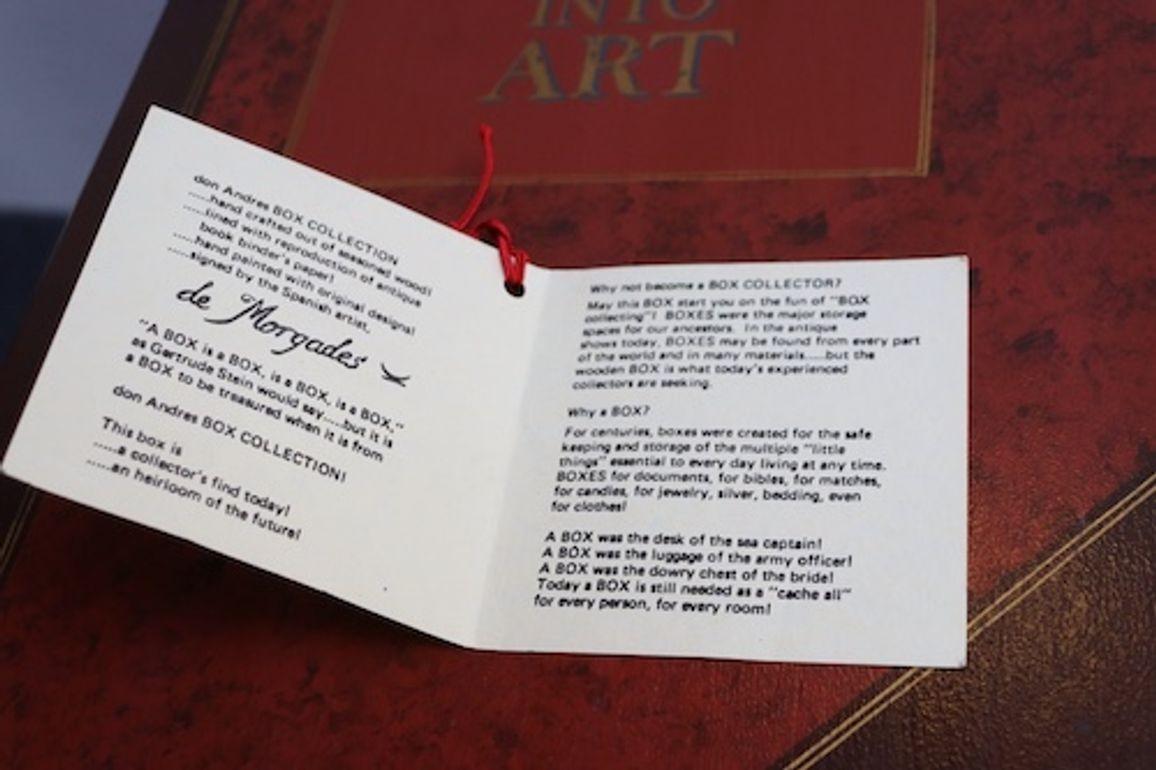 INTO
ART
don Andres BOX COLLECTION
.....hand crafted out of seasoned wood!
.....lined with reproduction of antique
book binder's paper!
.....hand painted with original designs!
.....signed by the Spanish artist,
de Morgades
"A BOX is a BOX, is a BOX, is a BOX,"
as Gertrude Stein would say.....but it is
a BOX to be treasured when it is from
don Andres BOX COLLECTION!
This box is
.....a collector's find today!
.....an heirloom of the future!
Why not become a BOX COLLECTOR?
May this BOX start you on the fun of "BOX
collecting"! BOXES were the major storage
spaces for our ancestors. In the antique
shows today, BOXES may be found from every part
of the world and in many materials.....but the
wooden BOX is what today's experienced
collectors are seeking.
Why a BOX?
For centuries, boxes were created for the safe
keeping and storage of the multiple "little
things" essential to every day living at any time.
BOXES for documents, for bibles, for matches,
for candles, for jewelry, silver, bedding, even
for clothes!
A BOX was the desk of the sea captain!
A BOX was the luggage of the army officer!
A BOX was the dowry chest of the bride!
Today a BOX is still needed as a "cache all"
for every person, for every room!